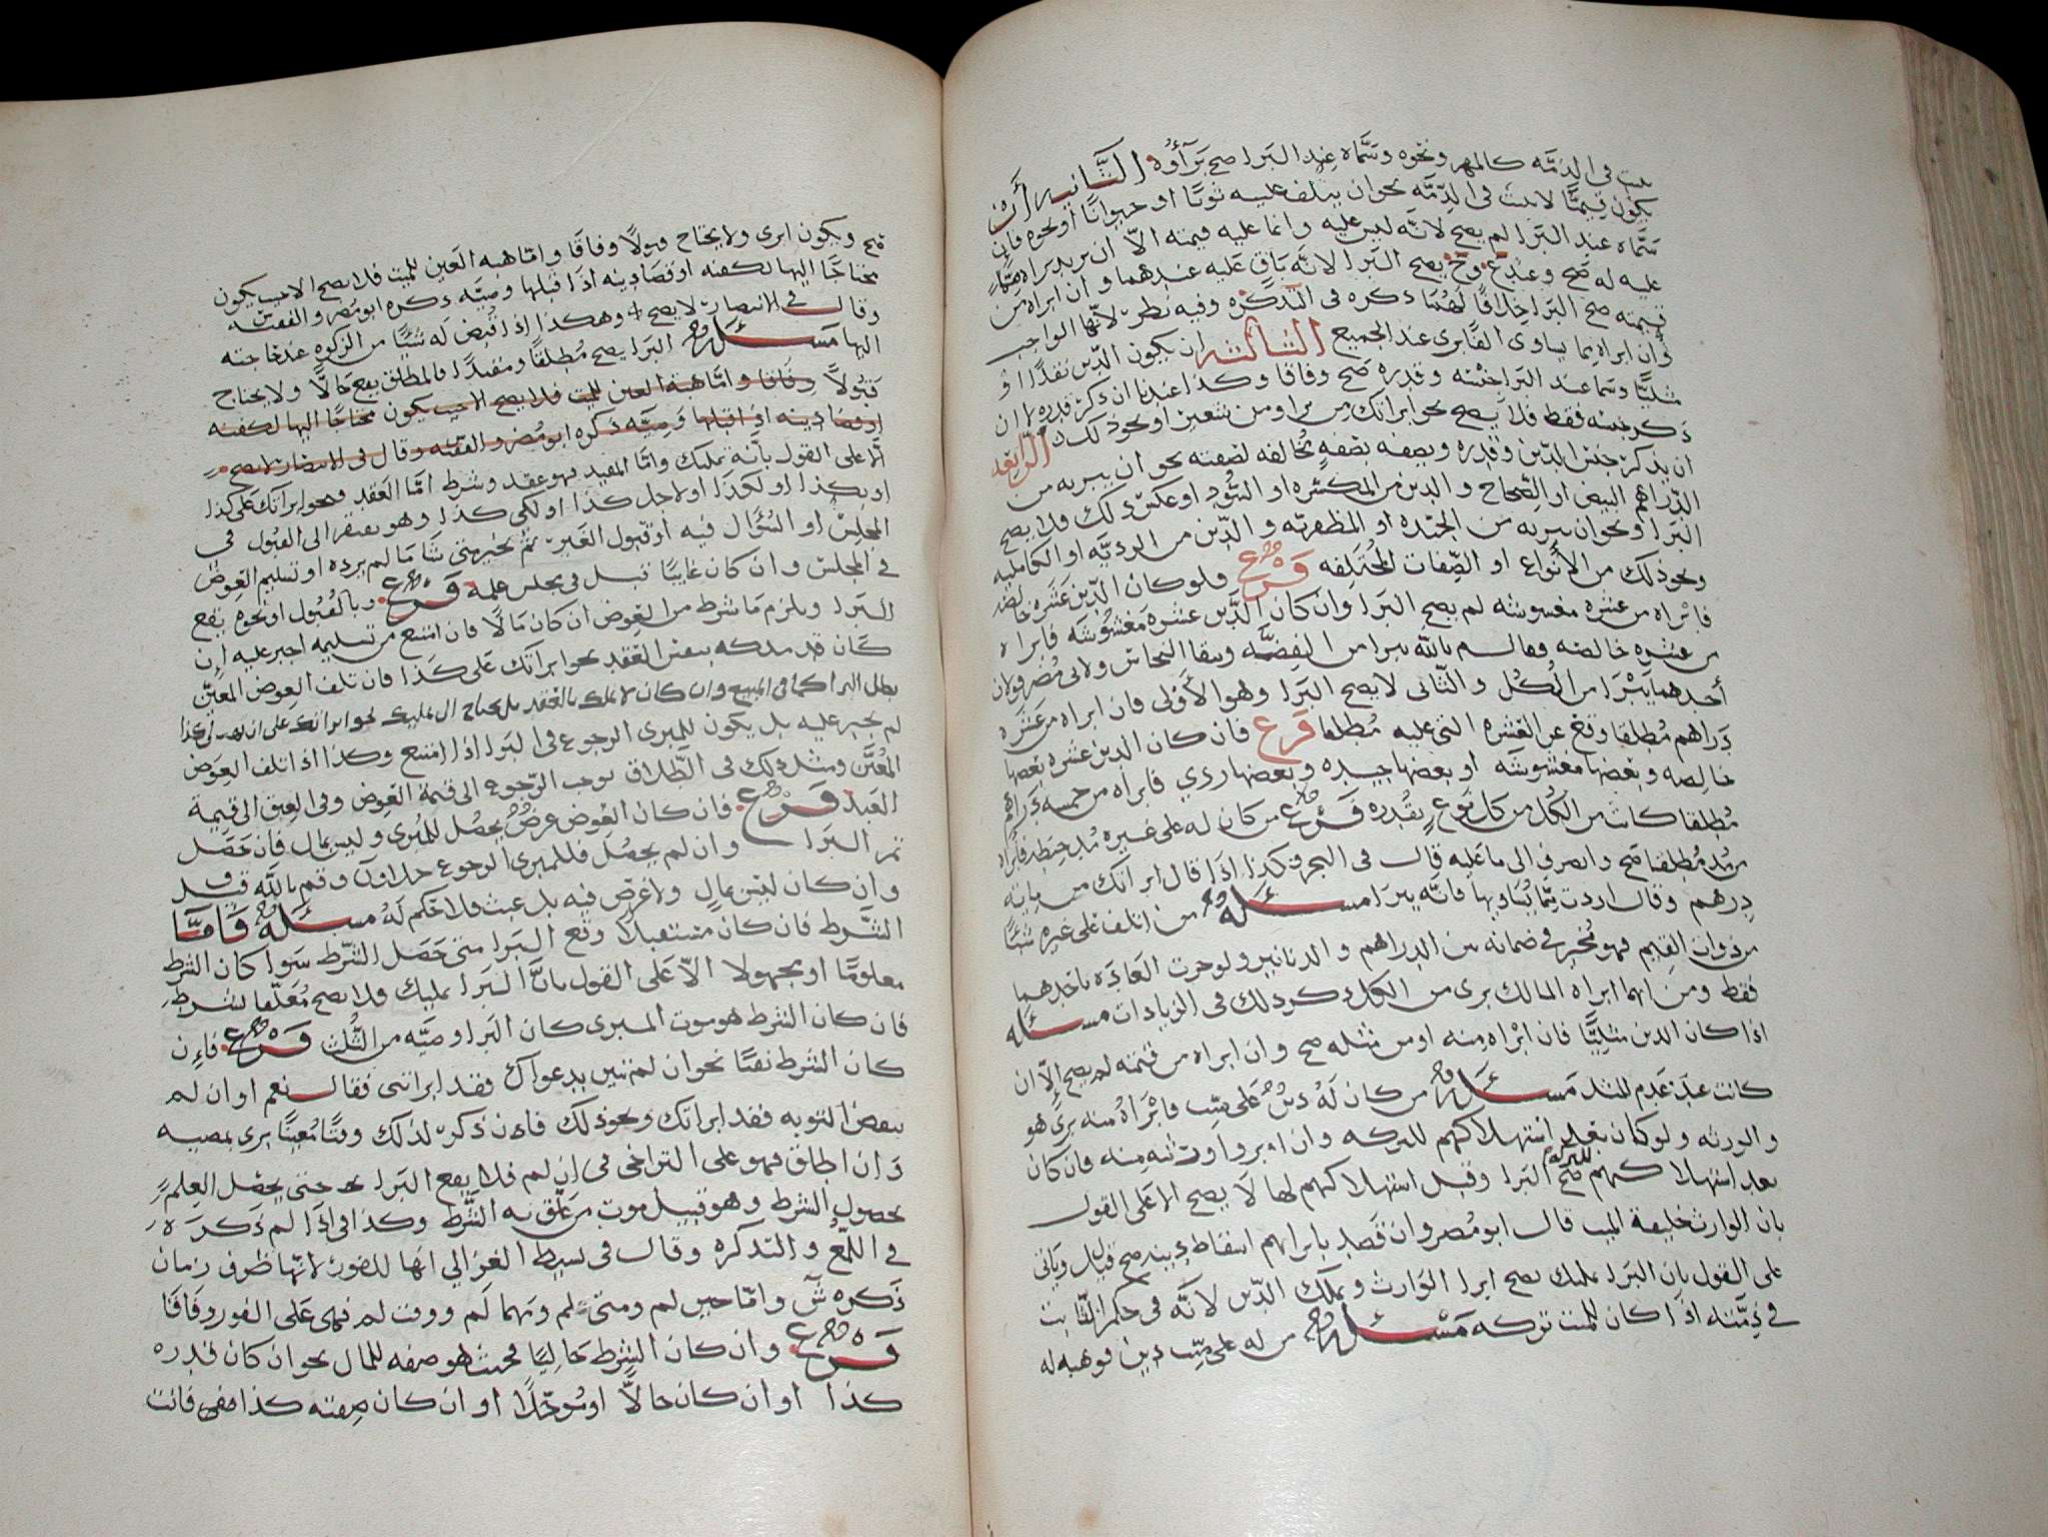 في الذمه كالمهر ونحوه وسَمَّاه عند البَرا صح بَرَآؤه الثَّانيه أن
يكون قِيميًّا لا يثبت في الذِمَّه نحو ان يتلف عليه ثوبًا او حيوانًا او نحوه فان
سَمَّاه عند البرا لم يصح لانَّه ليس عليه وانما عليه قيمته الاّ ان يريد براه مِمَّا
عليه له صَح وعند ع وح يصح البَرا لانَّه بَاقٍ عليه عندهما وان ابراه من
قيمته صح البَرا خِلافًا لَهُما ذكره في التذكره وفيه نظر لانّها الواجب
وان ابراه بما يساوى القًا برى عند الجميع الثالثه ان يكون الدّين نقدًا او
مثليًّا وسما عند البَرا جنسه وقدره صَح وفاقا وكذا عندنا ان ذكر قدره لا ان
ذكر جنسه فقط فلا يصح نحو ابراتك من بر او من شعير او نحو ذلك الرّابعه
ان يذكر جنس الدّين وقدره ويصفه بصفهٍ تخالفه لصفته نحو ان يبريه من
الدّراهم البيض او الصِّحاح والدين من المكسّره او السُّود او عكس ذلك فلا يصح
البَرا او نحو ان يبريه من الجيّده او المظفريّه والدّين من الرديَّه او الكامليه
ونحو ذلك من الأنواع او الصِّفات المختلِفه فَرع فلو كان الدّين عَشَره خالصه
فابْراه من عشره مغشوشه لم يصح البَرا وان كان الدَّين عشره مَغشُوشَه فابراه
من عشره خالصه فقال م بالله يبرا من الفِضَّه ويبقا النحاس ولابى مُضَر قولان
أحدهما يَبْرَا من الكُل والثّانى لا يصح البَرا وهو الأَوْلى فان ابراه من عَشَره
دَراهم مُطلقا وقع عن العَشره التى عليه مُطلقا فَرع فان كان الدين عشره بعضها
خالصه وبَعضها مَغشوشَه او بعضها جيِّده وبعضها ردي فابراه من خمسه دَراهم
مُطلقا كانت من الكُل من كل نَوعٍ بقَدْره فَرْع من كان له على غيره مُد حِنطه فابراه
من مُدٍ مُطلقا صَح وانصرف الى ما عليه قال في البحر وكذا اذا قال ابراتك من مايه
دِرهم وقال اردت مِمّا يُسَاويها فانَّه يبرَا مسئله من اتلف على غيره شيئًا
من ذوات القِيَم فهو مُخَيَّر في ضمانه بين الدراهم والدنانير ولو جرت العَادَه باحدهما
فقط ومن ايهما ابراه المالك برى من الكل ذكر ذلك في الزيادات مسئله
اذا كان الدين مثلِيَّا فان ابْراه مِنه او من مثله صح وان ابراه من قيمته لم يصح إلاّ ان
كانت عند عَدم المثل مَسئله من كان لَهُ دين على ميّتٍ فابْرَاهُ منه برى هو
والورثه ولو كان بَعد استهلاكهم للتركه وان ابرا ورثته مِنه فان كان
بعد استهلاكهم للتركه صَح البَرا وقبل استهلاكهم لها لَا يصح الا على القول
بان الوارث خليفة الميت قال ابو مُضر وان قَصد بابرائهم اسقاط دينه صح قيل وياتى
على القول بان البَرا تمليك يصح ابرا الوَارث ويملك الدّين لانّه في حكم الثّابت
في ذِمَّته اذَا كان للميت تركه مَسْئله من له على ميِّت دين فوهبه له
صح ويكون ابرى ولا يحتاج قبولًا وفاقًا وامّا هبه العَين للميت فلا يصح الا حيث يكون
محتاجًا اليها لكفنه او قضا دينه اذا قبلها وصِيّه ذكره ابو مُضَر والفقيه س
وقال في الانتصار لا يصح وهكذا اذا قبَض لَه شيئًا من الزكوه عند حاجته
اليها مَسئله البرا يصح مُطلقًا ومقيدًا فالمطلق يقع حَالًّا ولا يحتاج
قبُولًا وفاقا وامّا هبه العين للميت فلا يصح الا حيث يكون محتاجًا اليها لكفنه
او قضا دينه اذ اقبلها وَصِيّه ذكره ابو مُضر والفقيه وقال في الانتصار لا يصح
الّا على القول بانَّه تمليك وامّا المقيد فهو عقد وشرط امَّا العَقد فنحو ابراتك على كذا
او بكذا او لكَذا او لاجل كذا او لكى كذا وهو يفتقر الى القبُول في
المجلِس او السُّؤال فيه او قبول الغَير ثُمّ يخير متى شَا مَا لم يرده او تسليم العِوض
في المجلس وان كان غايبًا قبل في مجلس علمه فَرع وبالقُبُول او نحوه يقع
البَرا ويلزم مَا شرط من العِوض ان كان مَالًا فان امتنع من تسليمه اجبر عليه إن
كَان قد ملكه بنفس العَقد نحو ابراتك عَلى كَذا فان تلف العِوض المعيَّن
بطل البرا كما في المبيع وان كان لا يملك بالعَقد بل يحتاج الى تمليك نحو ابراتك على ان تهب لي كذا
لم يجبر عليه بل يكون للمبرى الرجوع في البَرا اذا امتنع وكذا اذا تلف العِوَض
المُعيَّن ومثل ذلك في الطّلاق يوجب الرّجوع الى قيمة العِوض وفي العِتق الى قيمة
العَبد فَرع فان كان العِوض غرضٌ يحصُل للمُبرى وليس بمال فان حَصَل
تم البَرا وان لم يحصُل فللمبرى الرجوع وقم بالله قيل
وان كان ليس بمالٍ ولا غرَض فيه بل عبث فلا حُكم لَهُ مسئله فَامَّا
الشَّرط فان كان مستقبلًا وقع البَرا متى حَصَل الشّرط سَوا كان الشرط
معلومًا او مجهولا الاّ عَلى القول بانَّ البَرا تمليك فلا يصح مُعَلّقا بشرط
فان كان الشرط هو موت المبرى كان البَرا وصيَّه من الثُّلث فَرع فإن
كان الشرط نفيًا نحو ان لم تبين بدعواك فقد ابراتنى فقال نعم او ان لم
تقض التوبه فقد ابراتك ونحو ذلك فان ذكر لذلك وقتًا مُعينًا برى بمضيه
وَان اطلق فهو على التراخى في إن لم فلا يقع البَرا حتى يحصُل العِلم
بحصول الشرط وهو قبيل موت من عَلّق به الشَّرط وكذا في اذَا لم ذَكَرَه
في اللُّمع والتذكره وقال في بسيط الغَزالي انّها للفور لانّها ظرف زمان
ذَكره ش وامّا حين لم ومتى لم ومَهما لَم ووقت لم فهى عَلى الفور وفَاقًا
فَرع وان كان الشرط حَاليًا فحيث هو صفه للمال نحو ان كان قدره
كذا او ان كان حالًّا او مُوَجّلًا او ان كان صِفته كذا فهى فانت